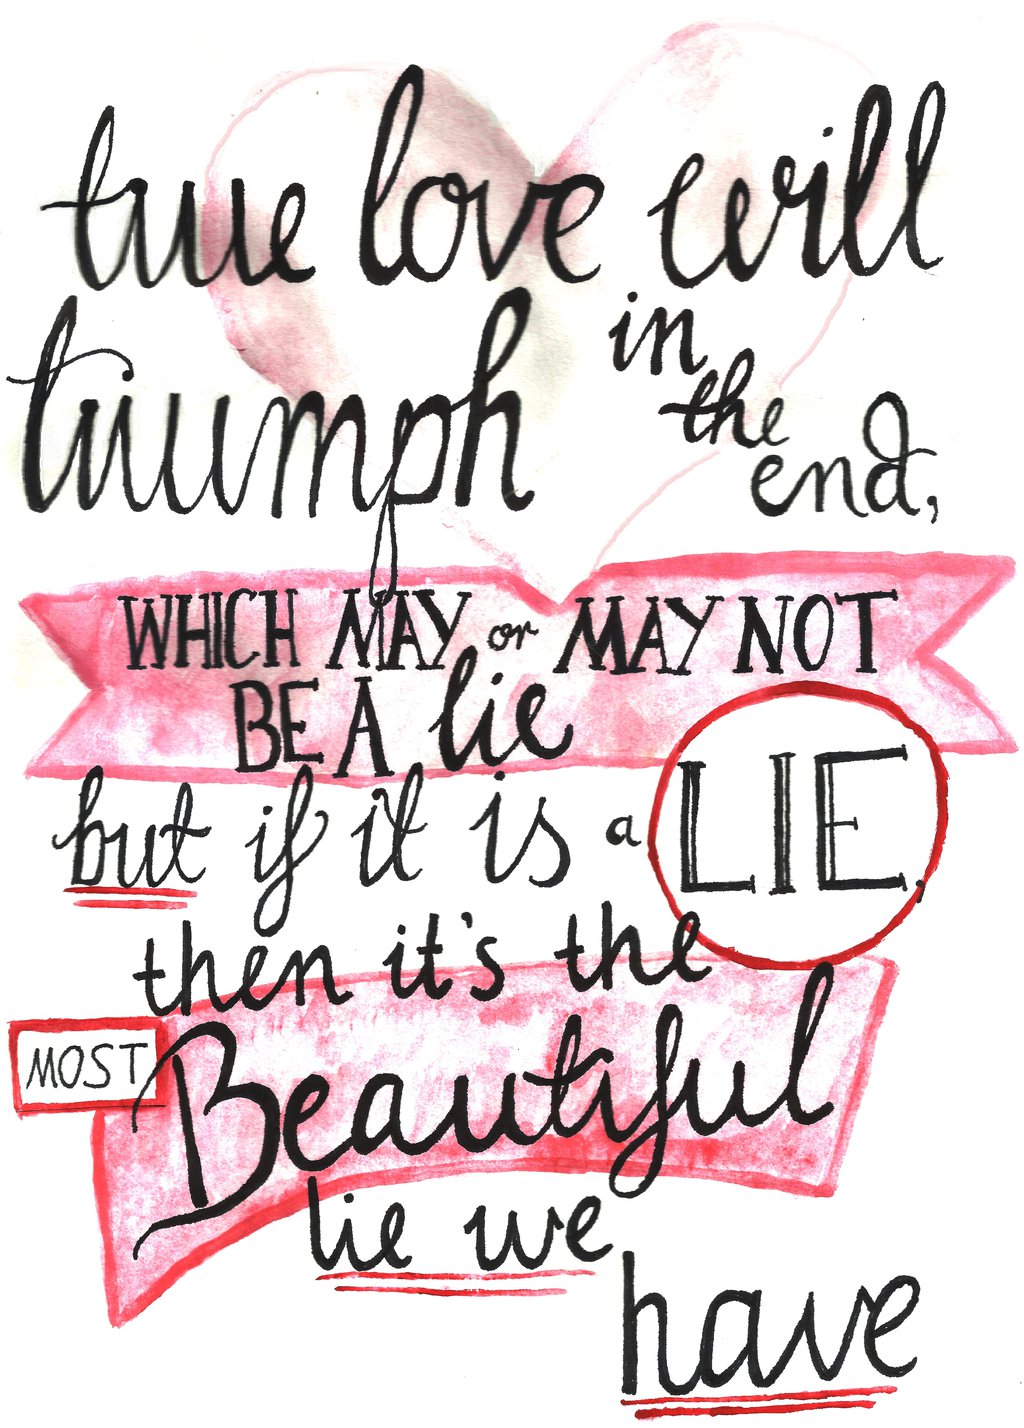 true love will
triumph in the end,
WHICH MAY or MAY NOT
BE A lie
but if it is a LIE.
then it's the
MOST Beautiful
lie we
have